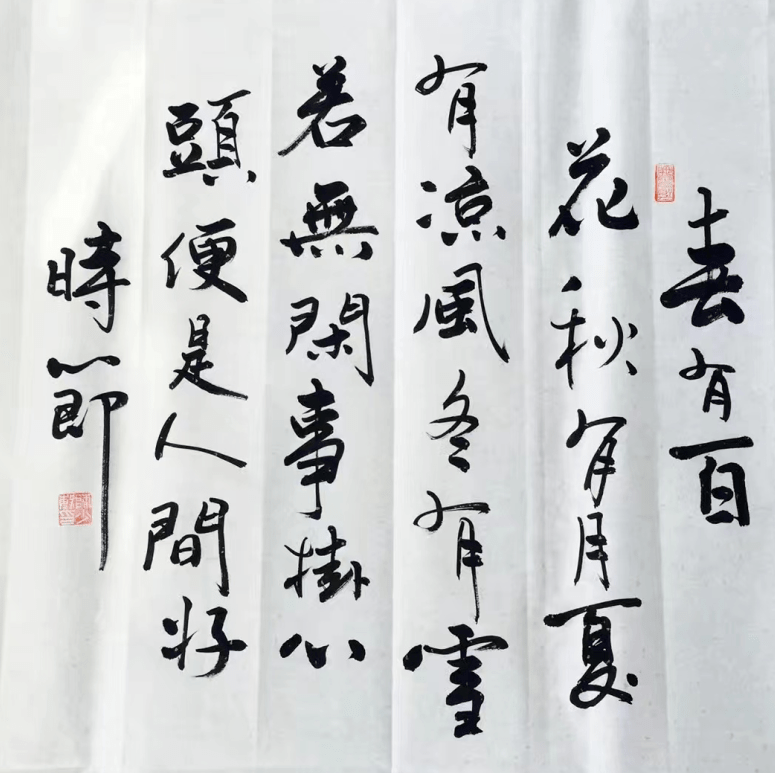 春有百
花秋有月夏
有凉風冬有雪
若無閑事掛心
頭便是人間好
時節